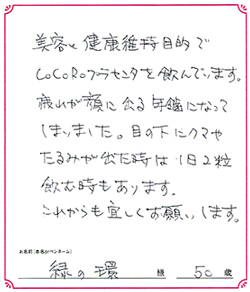 美容と健康維持目的で
CoCoRoプラセンタを飲んでいます。
疲れが顔に出る年齢になって
しまいました。目の下にクマや
たるみが出た時は1日2粒
飲む時もあります。
これからも宜しくお願いします。
お名前(本名orペンネーム)
緑の環 様 50歳